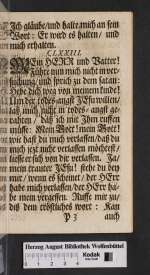 Ich gläube/und halte mich an sein
Wort: Er wird es halten/ und
mich erhalten.
CLXXIII.
MEin HERR und Vatter!
Führe mich nicht in ver-
suchung/und sprich zu dem satan:
Hebe dich weg von meinem kinde!
Um der todes-angst JEsu willen/
laß mich nicht in todes-angst ge-
rahten / daß ich nie Ihm ruffen
müsste: Mein Gott! mein Gott!
wie hast du mich verlassen/daß du
mich jetzt nicht verlassen möchtest/
lasse er sich von dir verlassen. Ja/
mein treuster JEsu! stehe du bey
mir/ wenn es scheinet / der HErr
habe mich verlassen/der HErr ha-
be mein vergessen. Ruffe mir zu
diß dein tröstliches wort: Kan
P 3 auch
Herzog August Bibliothek Wolfenbüttel